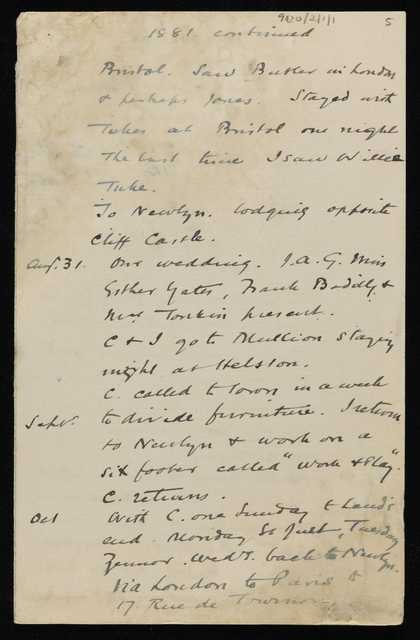 9200/2/1/1
5
1881. continued
Bristol. Saw Butler in London
& perhaps Jones. Stayed with
Tukes at Bristol one night
the last time I saw Willie
Tuke.
To Newlyn. lodging opposite
Cliff Castle.
Aug. 31. Our wedding. J.A.G. Miss
Esther Yates, Frank Bodilly &
Mrs Tonkin present.
C & I go to Mullion staying
night at Helston.
C. called to town in a week
Sept. to divide furniture. I return
to Newlyn & work on a
six footer called "Work & Play".
C. returns.
Oct With C. one Sunday to Land's
end. Monday St Just, Tuesday
Zennor. Wed'y. back to Newlyn.
Via London to Paris &
17. Rue de Tournon